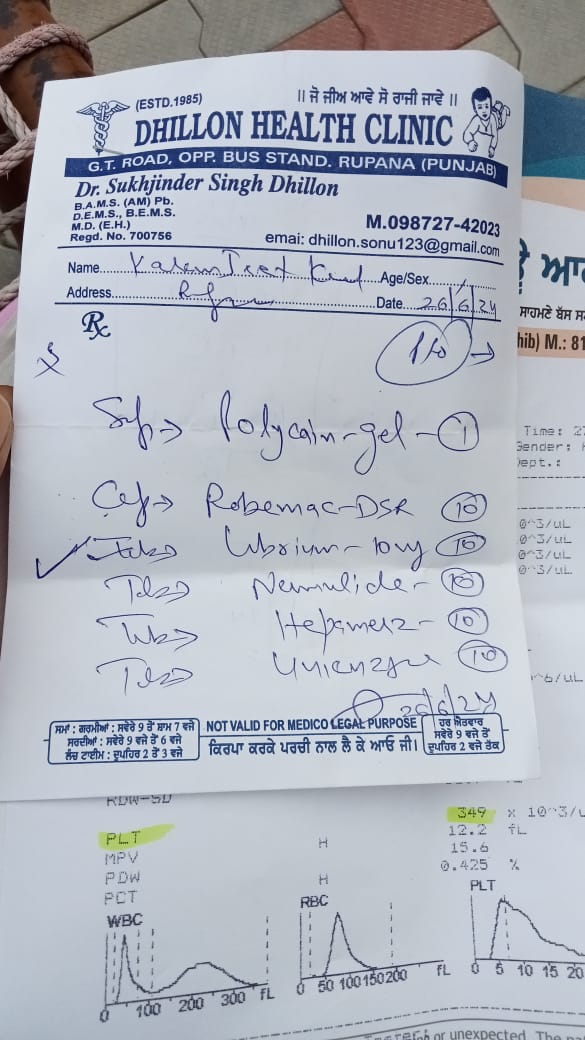 (ESTD.1985)
॥ ਜੋ ਜੀਅ ਆਵੇ ਸੋ ਰਾਜੀ ਜਾਵੇ ॥
DHILLON HEALTH CLINIC
G.T. ROAD, OPP. BUS STAND. RUPANA (PUNJAB)
Dr. Sukhjinder Singh Dhillon
B.A.M.S. (AM) Pb.
D.E.M.S., B.E.M.S.
M.D. (E.H.)
Regd. No. 700756
M.098727-42023
emai: dhillon.sonu123@gmail.com
Name
Age/Sex
Address
Date 26/6/24
Rx
Syp Polycain-gel- 1
Cap Robemac-DSR 10
Tab Librium-10mg 10
Tab Nemulide- 10
Tab Hepamerz- 10
Tab Unienzyme 10
26/6/24
ਸਮਾਂ : ਗਰਮੀਆਂ : ਸਵੇਰੇ 9 ਤੋਂ ਸ਼ਾਮ 7 ਵਜੇ
ਸਰਦੀਆਂ : ਸਵੇਰੇ 9 ਵਜੇ ਤੋਂ 6 ਵਜੇ
ਲੰਚ ਟਾਈਮ : ਦੁਪਹਿਰ 2 ਤੋਂ 3 ਵਜੇ
NOT VALID FOR MEDICO LEGAL PURPOSE
ਕਿਰਪਾ ਕਰਕੇ ਪਰਚੀ ਨਾਲ ਲੈ ਕੇ ਆਓ ਜੀ।
ਹਰ ਐਤਵਾਰ
ਸਵੇਰੇ 9 ਤੋਂ
ਦੁਪਹਿਰ 2 ਵਜੇ ਤੱਕ
ਸਾਹਮਣੇ ਬੱਸ
hib) M.: 81
Time: 2
Gender:
Dept.:
0^3/uL
0^3/uL
0^3/uL
0^3/uL
^6/uL
RDW-SD
PLT 349 x 10^3/u
MPV H 12.2 fL
PDW 15.6
PCT H 0.425 %
WBC
0 100 200 300 fL
RBC
0 50 100 150 200 fL
PLT
0 5 10 15 20
or unexpected. The